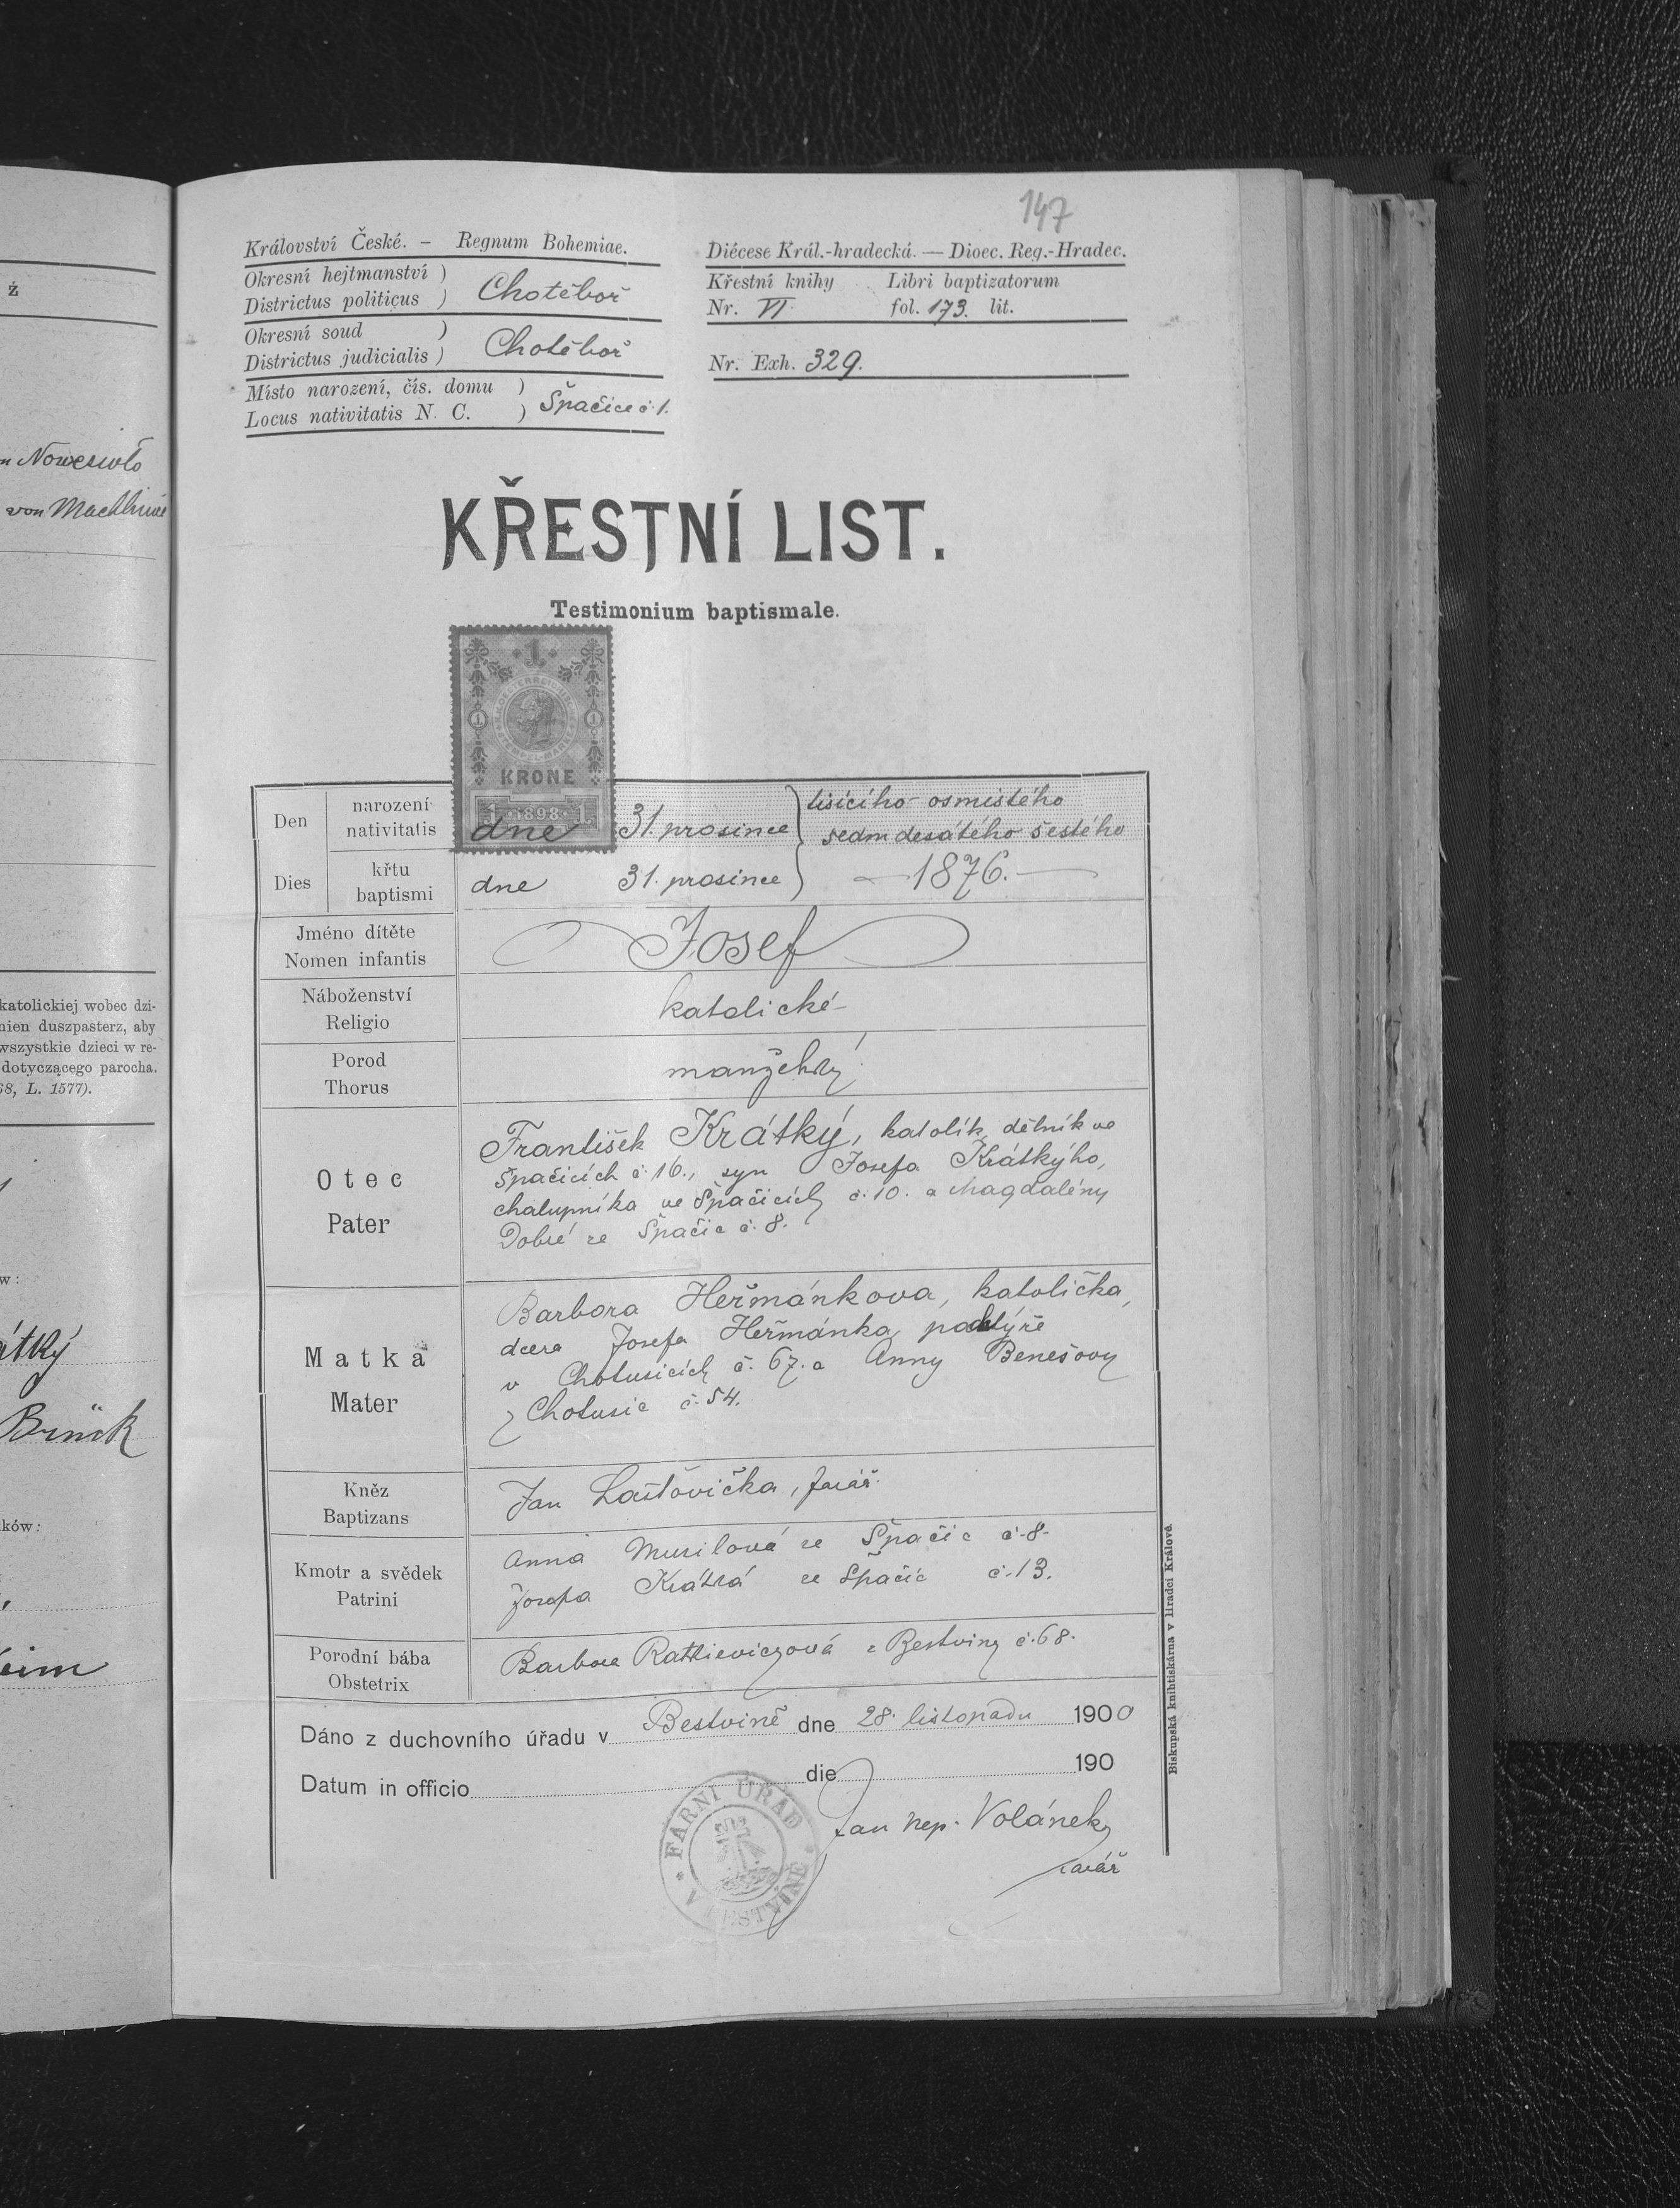 147
Království České. – Regnum Bohemiae.
Okresní hejtmanství )
Districtus politicus ) Chotěboř
Okresní soud )
Districtus judicialis ) Chotěboř
Místo narození, čís. domu )
Locus nativitatis N. C. ) Špačice č. 1.
Diécese Král.-hradecká. — Dioec. Reg.-Hradec.
Křestní knihy Libri baptizatorum
Nr. VI. fol. 173. lit.
Nr. Exh. 329.
KŘESTNÍ LIST.
Testimonium baptismale.
1
1 1
KRONE
1 1898 1
Den narození nativitatis dne 31. prosince tisícího osmistého
sedmdesátého šestého
Dies křtu baptismi dne 31. prosince — 1876. —
Jméno dítěte
Nomen infantis Josef
Náboženství
Religio katolické
Porod
Thorus manželský
Otec
Pater
František Krátký, katolík, dělník ve
Špačicích č. 16., syn Josefa Krátkýho,
chalupníka ve Špačicích č. 10. a Magdalény
Dobré ze Špačic č. 8.
Matka
Mater
Barbora Heřmánkova, katolička,
dcera Josefa Heřmánka, pachtýře
v Chotusicích č. 67. a Anny Benešovy
z Chotusic č. 54.
Kněz
Baptizans Jan Laštovička, farář.
Kmotr a svědek
Patrini
Anna Musilová ze Špačic č. 8.
Josefa Krátká ze Špačic č. 13.
Porodní bába
Obstetrix Barbora Ratkieviczová z Bestviny č. 68.
Dáno z duchovního úřadu v Bestvině dne 28. listopadu 1900
Datum in officio die 190
Jan Nep. Volánek,
farář
* FARNÍ ÚŘAD * V BESTVINĚ
Biskupská knihtiskárna v Hradci Králové
ż
Nowesioło
von
katolickiej wobec dzi-
nien duszpasterz, aby
wszystkie dzieci w re-
dotyczącego parocha.
68, L. 1577).
w:
átký
ków:
eim